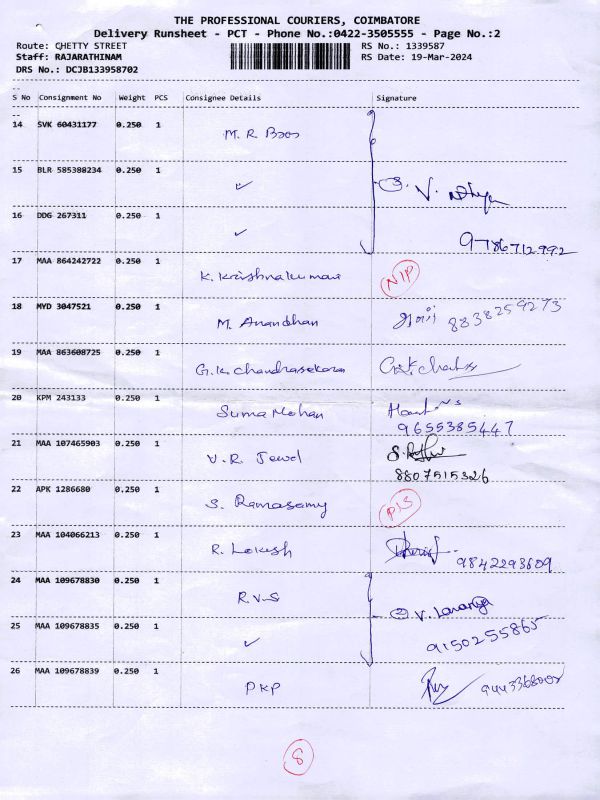 THE PROFESSIONAL COURIERS, COIMBATORE
Delivery Runsheet - PCT - Phone No.:0422-3505555 - Page No.:2
Route: CHETTY STREET RS No.: 1339587
Staff: RAJARATHINAM RS Date: 19-Mar-2024
DRS No.: DCJB133958702
S No Consignment No Weight PCS Consignee Details Signature
14 SVK 60431177 0.250 1 M. R. Bros
15 BLR 585388234 0.250 1 ✓ ③. V.
16 DDG 267311 0.250 1 ✓ 9786712992
17 MAA 864242722 0.250 1 K. Krishnakumar NIP
18 MYD 3047521 0.250 1 M. Anandhan 8838259273
19 MAA 863608725 0.250 1 G.K. Chandrasekara
20 KPM 243133 0.250 1 Suma Mohan
9655385447
21 MAA 107465903 0.250 1 V. R. Jewel
8807515326
22 APK 1286680 0.250 1 S. Ramasamy
23 MAA 104066213 0.250 1 R. Lokesh 9842293609
24 MAA 109678830 0.250 1 R.V.S ② V. Lavanya
25 MAA 109678835 0.250 1 ✓ 9150255865
26 MAA 109678839 0.250 1 PKP
8